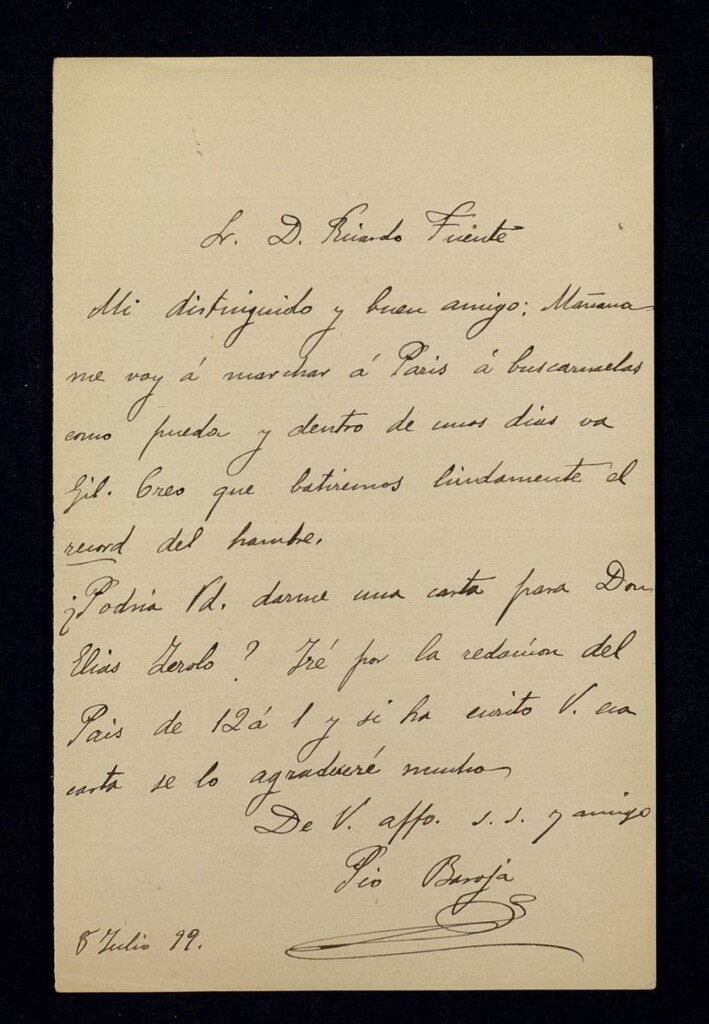 Sr. D. Ricardo Fuente
Mi distinguido y buen amigo: Mañana
me voy á marchar á Paris á buscarmelas
como pueda y dentro de unos dias va
Gil. Creo que batiremos lindamente el
record del hambre.
¿Podria Vd. darme una carta para Don
Elias Zerolo? Iré por la redaccion del
Pais de 12 á 1 y si ha escrito V. esa
carta se lo agradeceré mucho
De V. affo. s.s. y amigo
Pio Baroja
8 Julio 99.